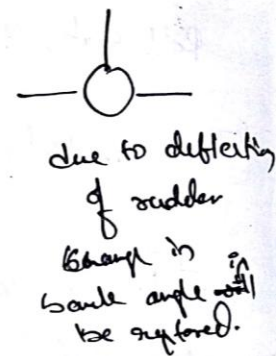 due to deflecting
of rudder
change in
bank angle
be restored.